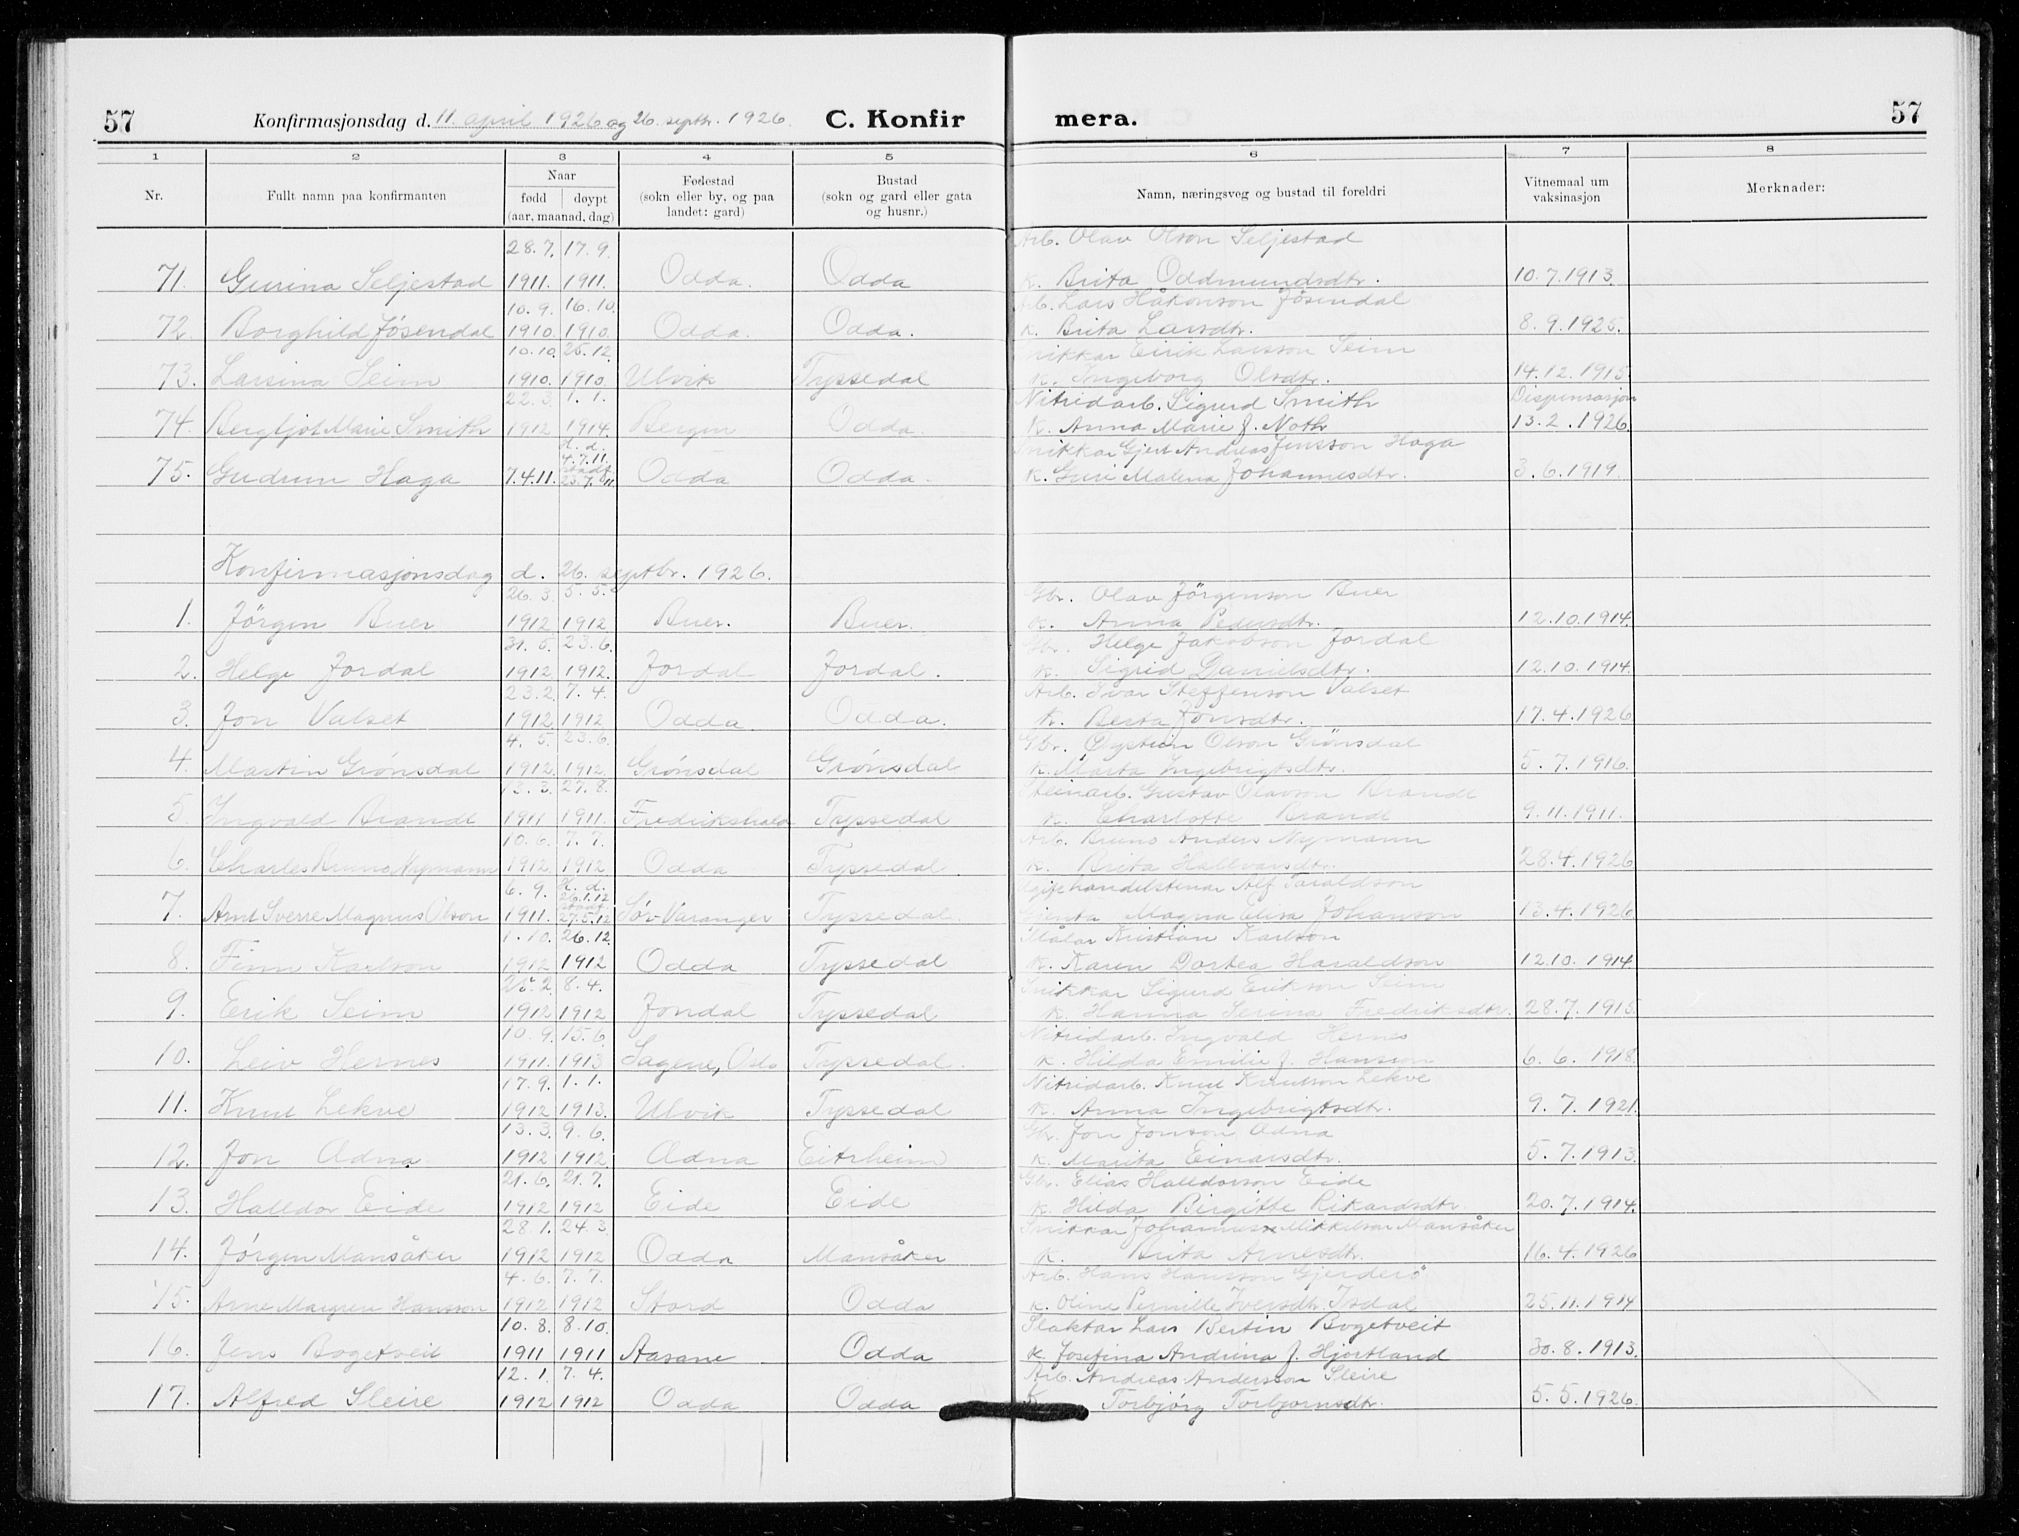 57 Konfirmasjonsdag d. 11. april 1926 og 26. septbr. 1926. C. Konfir mera. 57
1 2 3 4 5 6 7 8
Nr. Fullt namn paa konfirmanten Naar fødd døypt (aar, maanad, dag) Fødestad (sokn eller by, og paa landet: gard) Bustad (sokn og gard eller gata og husnr.) Namn, næringsveg og bustad til foreldri Vitnemaal um vaksinasjon Merknader:
28.7. 17.9. Arb. Olav Olson Seljestad
71. Gurina Seljestad 1911. 1911. Odda. Odda k. Brita Oddmundsdtr. 10.7.1913.
10.9. 16.10. Arb. Lars Håkonson Jøsendal
72. Borghild Jøsendal 1910 1910 Odda. Odda. k. Brita Larsdtr. 8.9.1925.
10.10. 25.12. Snikkar Eirik Larsson Seim
73. Larsina Seim 1910. 1910. Ulvik Tyssedal k. Ingeborg Olsdtr. 14.12.1915.
22.3. 1.1. Nitridarb. Sigurd Smith Dispensasjon
74. Bergljot Marie Smith 1912 1914. Bergen Odda. k. Anna Marie J. Noth 13.2.1926.
H. d. 4.7.11. Snikkar Gjert Andreas Jensson Haga
75. Gudrun Haga 7.4.11. stadf. 23.7.11. Odda Odda. k. Guri Malena Johannesdtr. 3.6.1919.
Konfirmasjonsdag d. 26. septbr. 1926.
26.3. 5.5. Gbr. Olav Jörgenson Buer
1. Jörgen Buer 1912 1912 Buer. Buer. k. Anna Pedersdtr. 12.10.1914.
31.5. 23.6. Gbr. Helge Jakobson Jordal
2. Helge Jordal 1912 1912. Jordal Jordal. k. Sigrid Danielsdtr. 12.10.1914.
23.2. 7.4. Arb. Ivar Steffenson Valset
3. Jon Valset 1912 1912 Odda Odda. k. Berta Jonsdtr. 17.4.1926
4.5. 23.6. Gbr. Øystein Olson Grönsdal
4. Martin Grónsdal 1912. 1912. Grónsdal Grónsdal k. Marta Ingebrigtsdtr. 5.7.1916.
12.3. 27.8. Steinarb. Gustav Olavson Brandt
5. Ingvald Brandt 1911 1911. Fredrikshald Tyssedal k. Charlotte Brandt 9.11.1911.
10.6. 7.7. Arb. Bruno Anders Nymann
6. Charles Bruno Nymann 1912 1912 Odda Tyssedal k. Brita Hallvarsdtr. 28.4.1926
6.9. H. d. 26.1.12 Ugift handelstenar Alf Taraldson
7. Arnt Sverre Magnus Olson 1911. stadf. 27.5.12 Sór-Varanger Tyssedal Gjenta Magna Elisa Johanson 13.4.1926
1.10. 26.12. Målar Kristian Karlson
8. Finn Karlson 1912 1912 Odda Tyssedal k. Karen Dortea Haraldson 12.10.1914.
25.2. 8.4. Snikkar Sigurd Erikson Seim
9. Erik Seim 1912 1912 Jondal Tyssedal k. Hanna Serina Fredriksdtr. 28.7.1915.
10.9. 15.6. Nitridarb. Ingvald Hernes
10. Leiv Hernes 1911. 1913 Sagene, Oslo Tyssedal. k. Hilda Emilie J. Hanson 6.6.1918.
17.9. 1.1. Nitridarb. Knut Knutson Lekve
11. Knut Lekve 1912 1913. Ulvik Tyssedal k. Anna Ingebrigtsdtr. 9.7.1921.
13.3. 9.6. Gbr. Jon Jonson Adna
12. Jon Adna 1912 1912. Adna Eitrheim k. Marita Einarsdtr. 5.7.1913.
21.6. 21.7. Gbr. Elias Halldorson Eide
13. Halldor Eide 1912 1912 Eide Eide k. Hilda Birgitte Rikardsdtr. 20.7.1914.
28.1. 24.3. Snikkar Johannes Mikkelson Mansåker
14. Jórgen Mansåker 1912 1912 Odda Mansåker k. Brita Arnesdtr. 16.4.1926
4.6. 7.7. Arb. Hans Hansson Gjerderö
15. Arne Hansson 1912 1912 Stord Odda k. Oline Pernille Iversdtr. Isdal 25.11.1914
10.8. 8.10. Slaktar Lars Bertin Bogetveit
16. Jens Bogetveit 1911 1911 Aasane Odda k. Josefina Andrina J. Hjortland 30.8.1913.
12.1. 7.4. Arb. Andreas Andersson Sleire
17. Alfred Sleire 1912 1912 Odda Odda k. Torbjórg Torbjornsdtr. 5.5.1926.